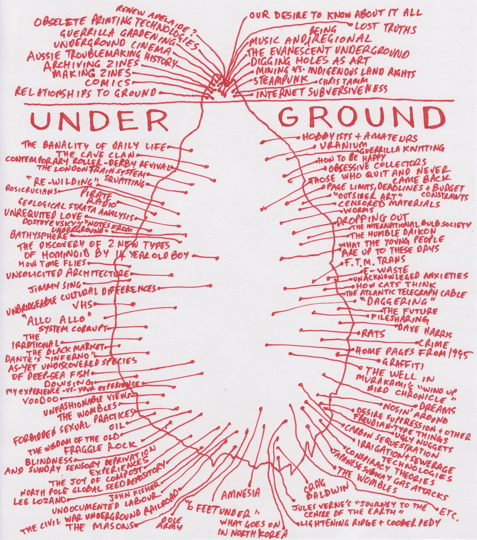 RENEW ADELAIDE?
OBSOLETE PRINTING TECHNOLOGIES
GUERRILLA GARDENING
UNDERGROUND CINEMA
AUSSIE TROUBLEMAKING HISTORY
ARCHIVING ZINES
MAKING ZINES
COMICS
RELATIONSHIPS TO GROUND
OUR DESIRE TO KNOW ABOUT IT ALL
BEING
LOST TRUTHS
MUSIC AND/REGIONAL
THE EVANESCENT UNDERGROUND
DIGGING HOLES AS ART
MINING VS. INDIGENOUS LAND RIGHTS
STEAMPUNK
CHRIS TAMM
INTERNET SUBVERSIVENESS
UNDER GROUND
THE BANALITY OF DAILY LIFE
THE CAVE CLAN
CONTEMPORARY ROLLER-DERBY REVIVAL
THE LONDON TRAIN SYSTEM
SQUATTING
"RE-WILDING"
ROSICRUCIANS
PIRATE
RADIO
GEOLOGICAL STRATA ANALYSIS
UNREQUITED LOVE
DOSTOYEVSKY'S "NOTES FROM
UNDERGROUND"
BATHYSPHERE
THE DISCOVERY OF 2 NEW TYPES
OF HOMINOID BY 14 YEAR OLD BOY
HOW TIME FLIES
UNSOLICITED ARCHITECTURE
JIMMY SING
UNBRIDGEABLE CULTURAL DIFFERENCES
VHS
"ALLO ALLO"
SYSTEM CORRUPT
THE
IRRATIONAL
THE BLACK MARKET
DANTE'S "INFERNO"
AS-YET UNDISCOVERED SPECIES
OF DEEP-SEA FISH
DOWSING
MY EXPERIENCE -VS- YOUR EXPERIENCE
VOODOO
UNFASHIONABLE VIEWS
THE WOMBLES
FORBIDDEN SEXUAL PRACTICES
OIL
THE WISDOM OF THE OLD
FRAGGLE ROCK
BLINDNESS
AND SUNDRY SENSORY DEPRIVATION
EXPERIENCES
THE JOY OF COMPOST
NORTH POLE GLOBAL SEED DEPOSITORY
LEE LOZANO
JOHN FISHER
UNDOCUMENTED LABOUR
THE CIVIL WAR UNDERGROUND RAILROAD
THE MASONS
DOLE
ARMY
"6 FEET UNDER"
AMNESIA
WHAT GOES ON
IN NORTH KOREA
HOBBYISTS + AMATEURS
URANIUM
GUERILLA KNITTING
HOW TO BE HAPPY
OBSESSIVE COLLECTORS
THOSE WHO QUIT AND NEVER
CAME BACK
PAGE LIMITS, DEADLINES + BUDGET
CONSTRAINTS
"OUTSIDER ART"
CENSORED MATERIALS
WORMS
DROPPING OUT
THE INTERNATIONAL BULB SOCIETY
THE HUMBLE DAIKON
WHAT THE YOUNG PEOPLE
ARE UP TO THESE DAYS
F.T.M. TRANS
E-WASTE
UNACKNOWLEGED ANXIETIES
HOW CATS THINK
THE ATLANTIC TELEGRAPH CABLE
"DAGGERING"
THE FUTURE
FILESHARING
DAVE HARRIS
RATS
CRIME
HOME PAGES FROM 1995
GRAFFITI
THE WELL IN
MURAKAMI'S "WIND UP
BIRD CHRONICLE"
DREAMS
NOSIN' AROUND
DESIRE SUPPRESSION + OTHER
FREUDIAN-TYPE THINGS
UGLY NUGGETS
CARBON SEQUESTRATION
IRRIGATION/SEWERAGE
TECHNOLOGIES
CONSPIRACY THEORIES
JAPANESE SUBWAY GAS ATTACKS
THE WOMBLES
CRAIG
BALDWIN
ETC.
JULES VERNE'S "JOURNEY TO THE
CENTRE OF THE EARTH"
LIGHTENING RIDGE + COOBER PEDY